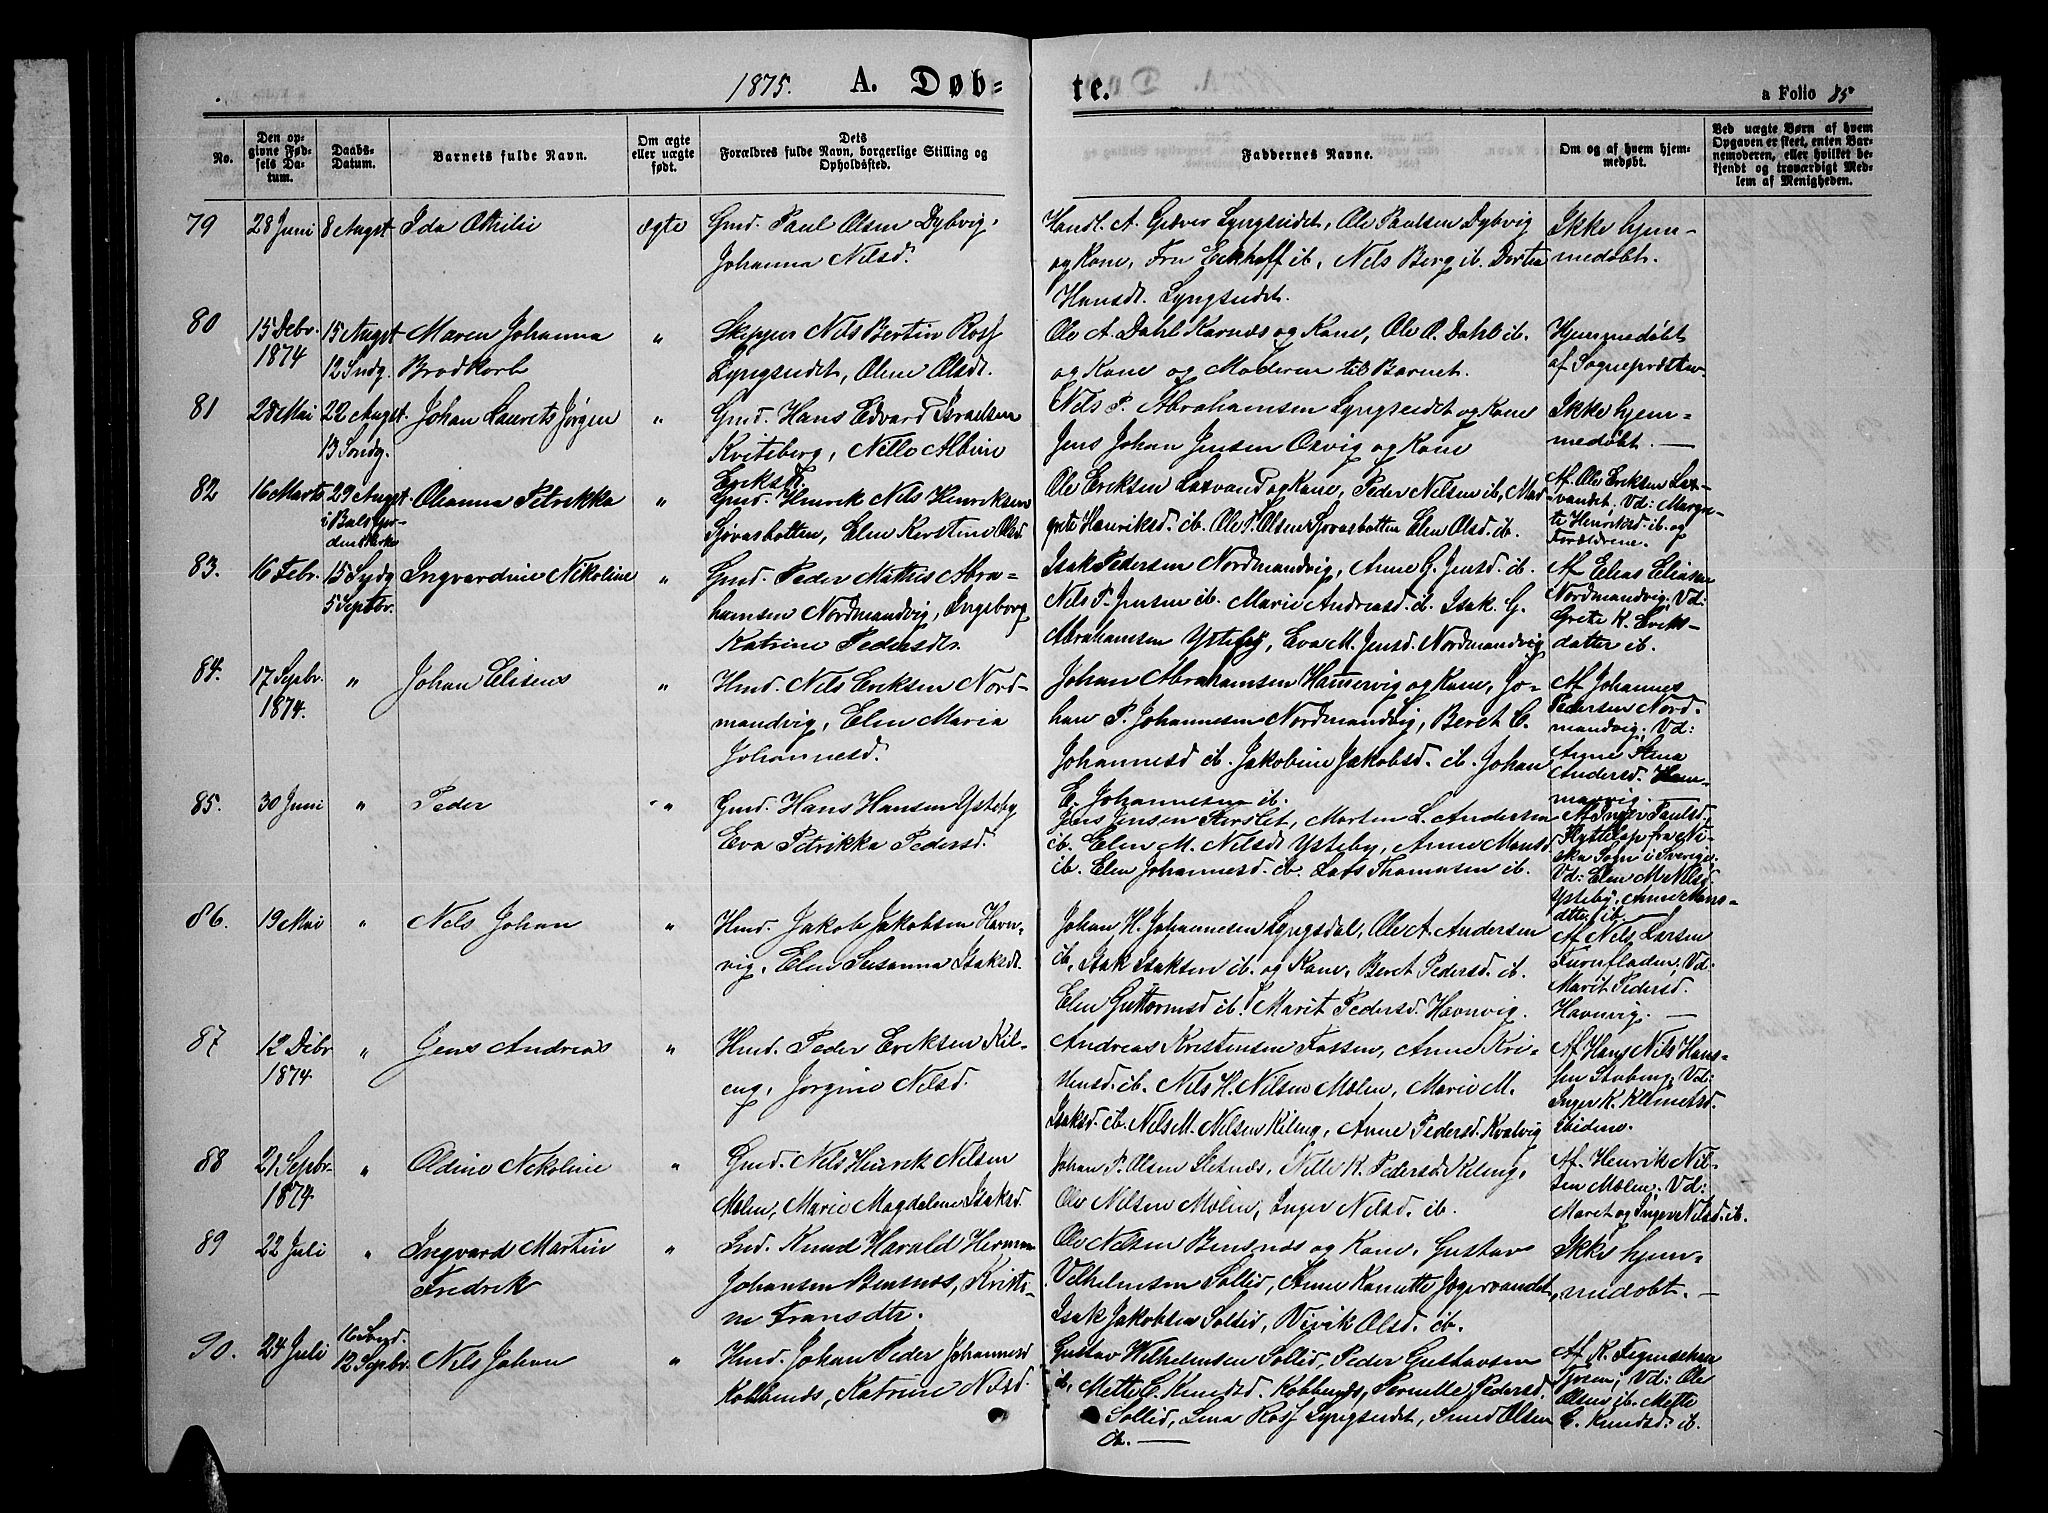 1875. A. Døb-
te.
a Folio 85
No.
Den op-
givne Fød-
sels Da-
tum.
Daabs-
Datum.
Barnets fulde Navn.
Om ægte
eller uægte
født.
Dets
Forældres fulde Navn, borgerlige Stilling og
Opholdssted.
Faddernes Navne.
Om og af hvem hjem-
medøbt.
Ved uægte Børn af hvem
Opgaven er skeet, enten Bar-
nemoderen, eller hvilket be-
kjendt og troværdigt Med-
lem af Menigheden.
79
28 Juni
8 Augst
Ida Othilie
ægte
Gmd. Paul Olsen Dybvig,
Johanna Nilsd.
Handl. A. Gjæver Lyngseidet, Ole Paulsen Dybvig
og Kone, Fru Eckhoff ib, Nels Berg ib. Dortea
Hansdt. Lyngseidet.
Ikke hjem-
medøbt.
80
15 Debr.
1874
15 Augst
12 Sndg.
Maren Johanna
Brodkorb
"
Skipper Nils Bertin Rosf
Lyngseidet, Oline Olsdt.
Ole A. Dahl Karnæs og Kone, Ole O. Dahl ib.
og Kone og Moderen til Barnet.
Hjemmedøbt
af Sognepræsten.
81
28 Mai
22 Augst.
13 Sondg.
Johan Laurets Jørgen
"
Gmd. Hans Edvard Israelsen
Kviteberg, Nille Albine
Eriksd.
Nils P. Abrahamsen Lyngseidet og Kone
Jens Johan Jensen Oxvig og Kone
Ikke hjem-
medøbt. —
82
16 Marts
29 Augst.
i Balsfjor-
dens Kirke
Oleanna Petrikka
"
Gmd. Henrik Nils Henriksen
Sjøvasbotten, Elen Kerstine Olsd.
Ole Eriksen Laxvand og Kone, Peder Nilsen ib, Mar-
grete Henriksd. ib. Ole P. Olsen Sjøvasbotten Elen Olsd. ib.
Af Ole Eriksen Lax-
vandet. Vd: Margre-
te Henriksd ib. og
Forældrene.
83.
16 Febr.
15 Sndg
5 Septbr.
Ingvardine Nikoline
"
Gmd. Peder Mathis Abra-
hamsen Nordmandvig, Ingeborg
Katrine Pedersdtr.
Isak Pedersen Nordmandvig, Anne G. Jensd. ib.
Nils P. Jensen ib. Marie Andreasd. ib. Isak G.
Abrahamsen Ysteby, Eva M. Jensd. Nordmandvig
Af Elias Eliasen
Nordmandvig. Vd:
Grete K. Eriks-
datter ib.
84.
17 Sepbr.
1874.
"
Johan Elisens
"
Hmd. Nils Eriksen Nord-
mandvig, Elen Maria
Johannesd.
Johan Abrahamsen Hamervig og Kone, Jo-
han P. Johannesen Nordmandvig, Beret E.
Johannesd ib. Jakobine Jakobsd. ib. Johan
E. Johannesen ib.
Af Johannes
Pedersen Nord-
mandvig; Vd:
Anne Stena
Andersd. Ham-
marvig. —
85.
30 Juni
"
Peder
"
Gmd. Hans Hansen Ysteby
Eva Petrikka Pedersd.
Jens Jensen Storslet, Morten L. Andersen
ib. Elen M. Nilsdt Ysteby, Anne Monsd.
ib. Elen Johannesd. ib. Lars Thomasen ib.
Af Inger Paulsd.
Flytlap fra Ni-
ska Sogn i Sverige.
Vd: Elen M Nilsd.
Ysteby, Anne Mons-
dtter ib.
86.
19 Mai
"
Nels Johan
"
Hmd. Jakob Jakobsen Havn-
vig, Elen Susanna Isaksdt.
Johan H. Johannesen Lyngsdal, Ole A. Andersen
ib, Isak Isaksen ib. og Kone, Beret Pedersd. ib.
Elen Guttormsd ib. Marit Pedersd. Havnvig.
Af Nils Larsen
Furufladen, Vd:
Marit Pedersd.
Havnvig. —
87
12 Debr
1874
"
Jens Andreas
"
Hmd. Peder Eriksen Kil-
eng, Jorgine Nilsd.
Andreas Kristensen Fossen, Anne Kri-
stensd. ib. Nils H. Nilsen Molen, Marie M.
Isaksd. ib. Nils M. Nilsen Kileng, Anne Pedersd. Kvalvig
Af Hans Nils Hans-
sen Stubeng, Vd:
Inger K. Klemetsd.
ibidem.
88
21 Sepbr.
1874
"
Oldine Nekoline
"
Gmd. Nils Henrik Nilsen
Molen, Marie Magdalene Isaksd.
Johan P. Olsen Sletnæs, Nille K. Pedersd. Kileng,
Ole Nilsen Molen, Inger Nilsd. ib.
Af. Henrik Nil-
sen Molen; Vd:
Maret og Inger Nilsd. ib.
89
22 Juli
"
Ingvard Martin
Fredrik
"
Ind. Knud Harald Herman
Johansen Bensnæs, Kristi-
ne Fransdtr.
Ole Nilsen Bensnæs og Kone, Gustav
Vilhelmsen Sollid, Anne Kanutte Jægervandet,
Isak Jakobsen Sollid, Vivik Olsd. ib.
Ikke hjem-
medøbt. —
90.
24 Juli
16 Sond.
12 Sepbr.
Nils Johan
"
Hmd. Johan Peder Johannesd
Kobbenæs, Katrine Nilsd.
Gustav Wilhelmsen Sollid, Peder Gustavsen
ib, Mette E. Knudsd. Kobbenæs, Pernelle Pedersd.
Sollid, Lena Rosf Lyngseidet, Smed Olsen
ib. —
Af K. Figenschou
Vd: Ole
Olsen ib. Mette
E. Knudsd. ib.